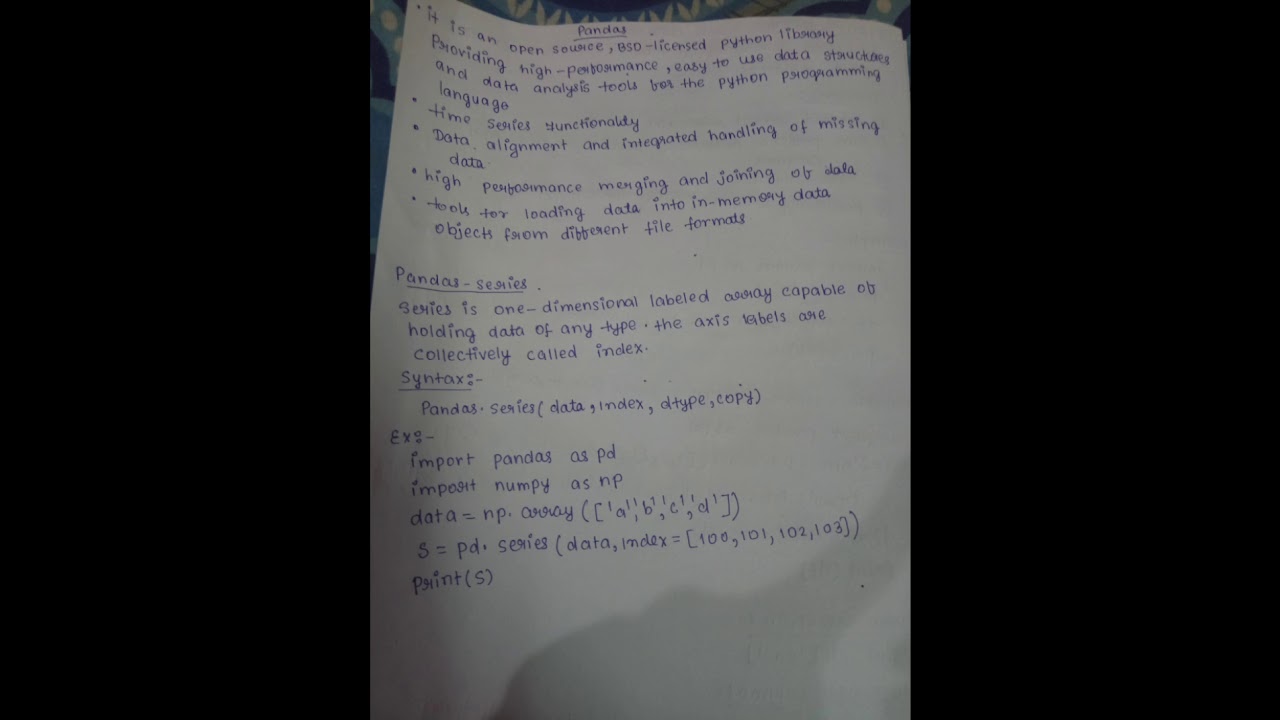 Pandas
• it is an open source, BSD-licensed python library
Providing high-performance, easy to use data structures
and data analysis tools for the python programming
language
• time series functionality
• Data alignment and integrated handling of missing
data
• high performance merging and joining of data
• tools for loading data into in-memory data
objects from different file formats
Pandas-series.
Series is one-dimensional labeled array capable of
holding data of any type. the axis labels are
collectively called index.
Syntax:-
Pandas.series(data, index, dtype, copy)
Ex:-
import pandas as pd
import numpy as np
data = np.array(['a','b','c','d'])
s = pd.series(data, index = [100, 101, 102, 103])
print(s)